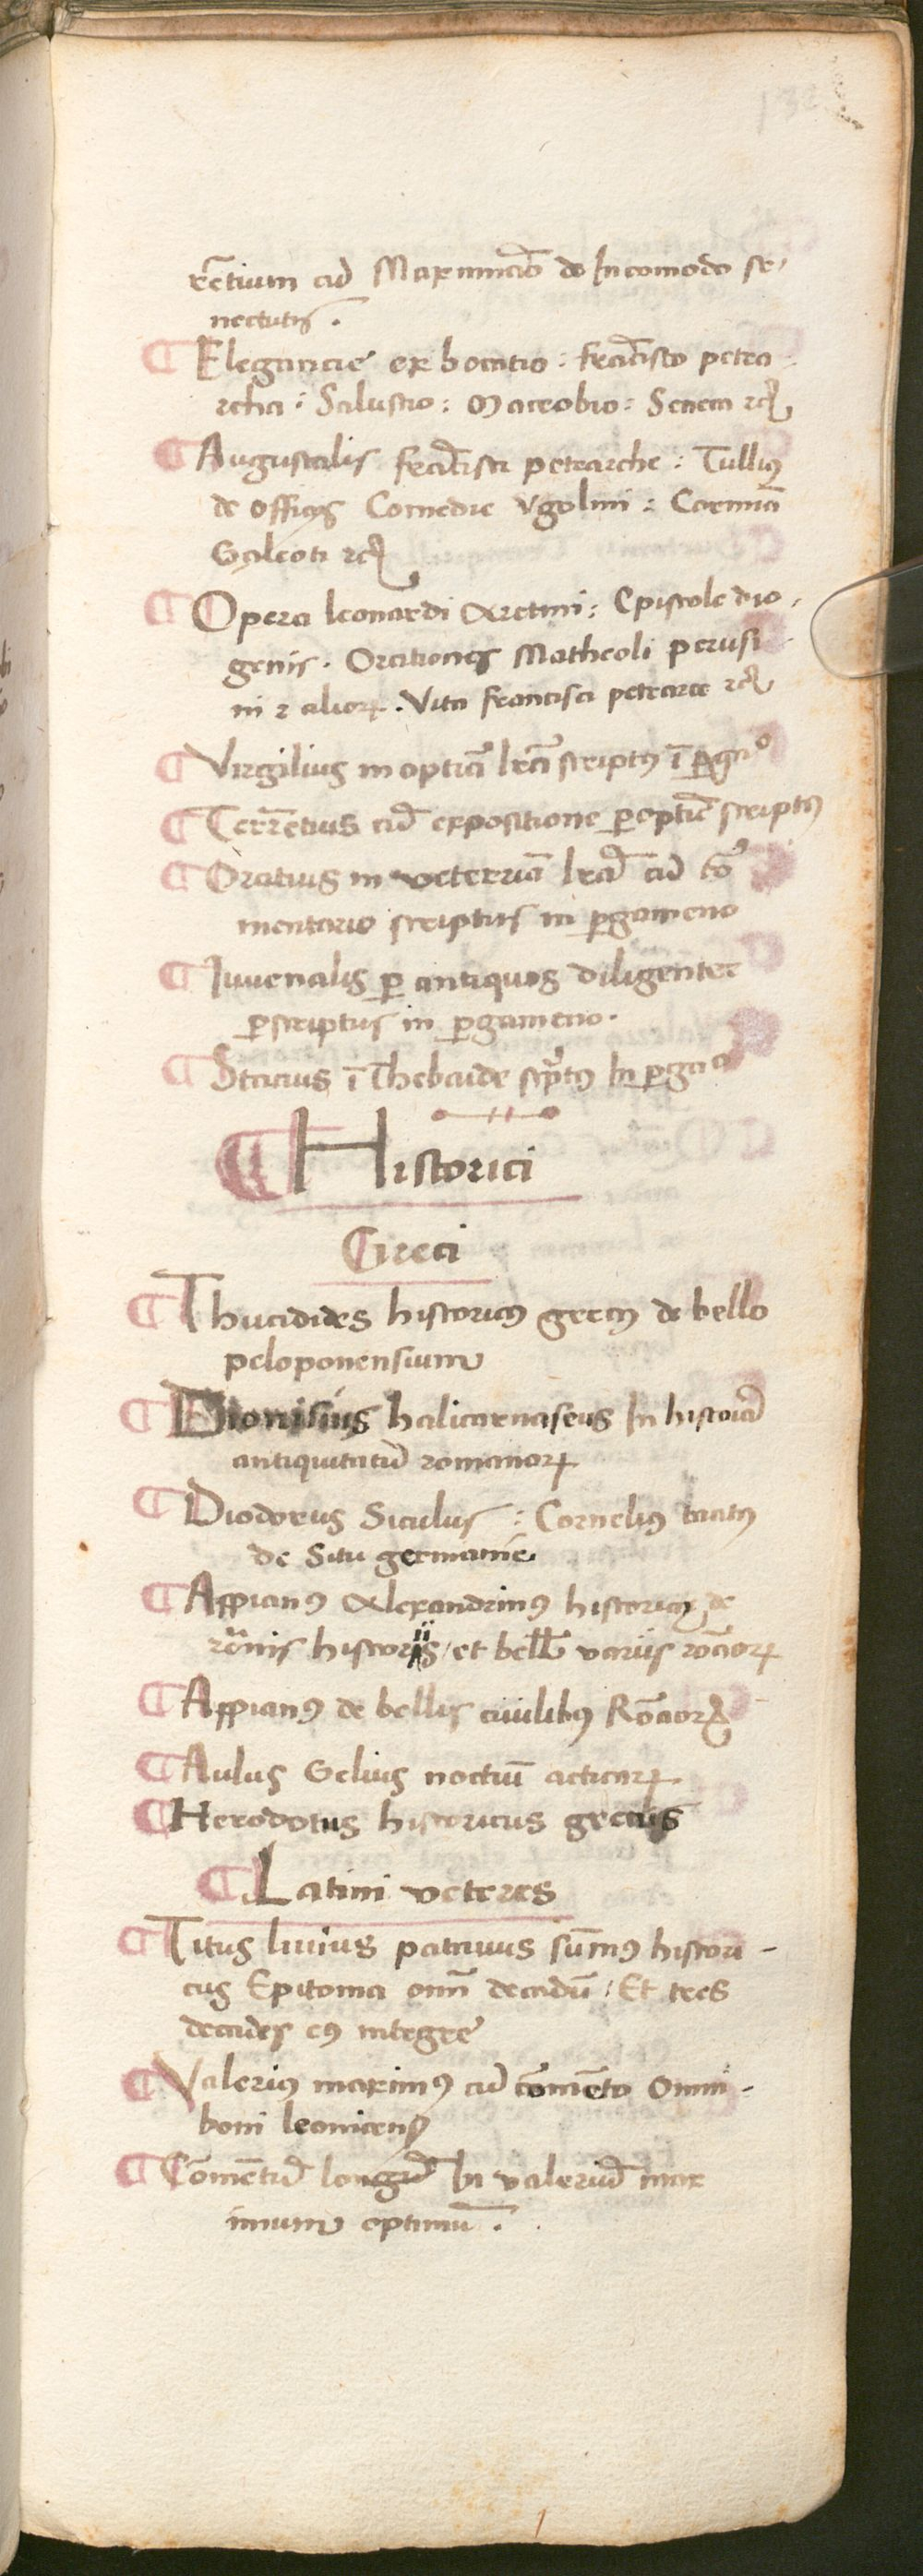 rētium cū Maximiāo de Incomodo se-
nectutis.
¶ Elegancie ex bocatio: frācisco petra
rcha: Salustio: Macrobio: Seneca ⁊cꝫ
¶ Augustalis frācisci petrarche: Tulliꝰ
de officijs Comedie vgolini: Carmīa
Galeoti ⁊cꝫ
¶ Opera leonardi Aretini: Epistole dio-
genis. Orationes Matheoli perusi-
ni ⁊ alioꝝ. Vita francisci petrarce ⁊cꝫ
¶ Virgilius in optīa lr̄a scriptꝰ ī ꝑgaº
¶ Terrētius cū expositione ꝑoptīe scriptꝰ
¶ Oratius in veterria lr̄a cū cō
mentario scriptus in ꝑgameno
¶ Iuuenalis ꝑ antiquos diligenter
ꝑscriptus in ꝑgameno.
¶ Stacius ī Thebaide scrptꝰ In ꝑgaº
¶ Historici
Greci
¶ Thucidides historicꝰ grecꝰ de bello
peloponensium
¶ Dionisius halicarnaseus In historiā
antiquitatū romanoꝝ
¶ Diodorus Siculus: Corneliꝰ tacitꝰ
de Situ germanie
¶ Appianꝰ Alexandrinꝰ historicꝰ de
rōnis historijs / et bell̄ varijs rōaoꝝ
¶ Appianꝰ de bellis ciuilibꝰ Rōaoꝝ
¶ Aulus Gelius noctiū acticaꝝ
¶ Herodotus historicus grecus
¶ Latini veteres
¶ Titus liuius patauus sūmꝰ histori-
cus Epitoma om̄ decadū / Et tres
decades eꝰ integre
¶ Valeriꝰ maximꝰ cū cōmēto Omni-
boni leoniceni
¶ Comētū longū In valeriū max
imum optimū.